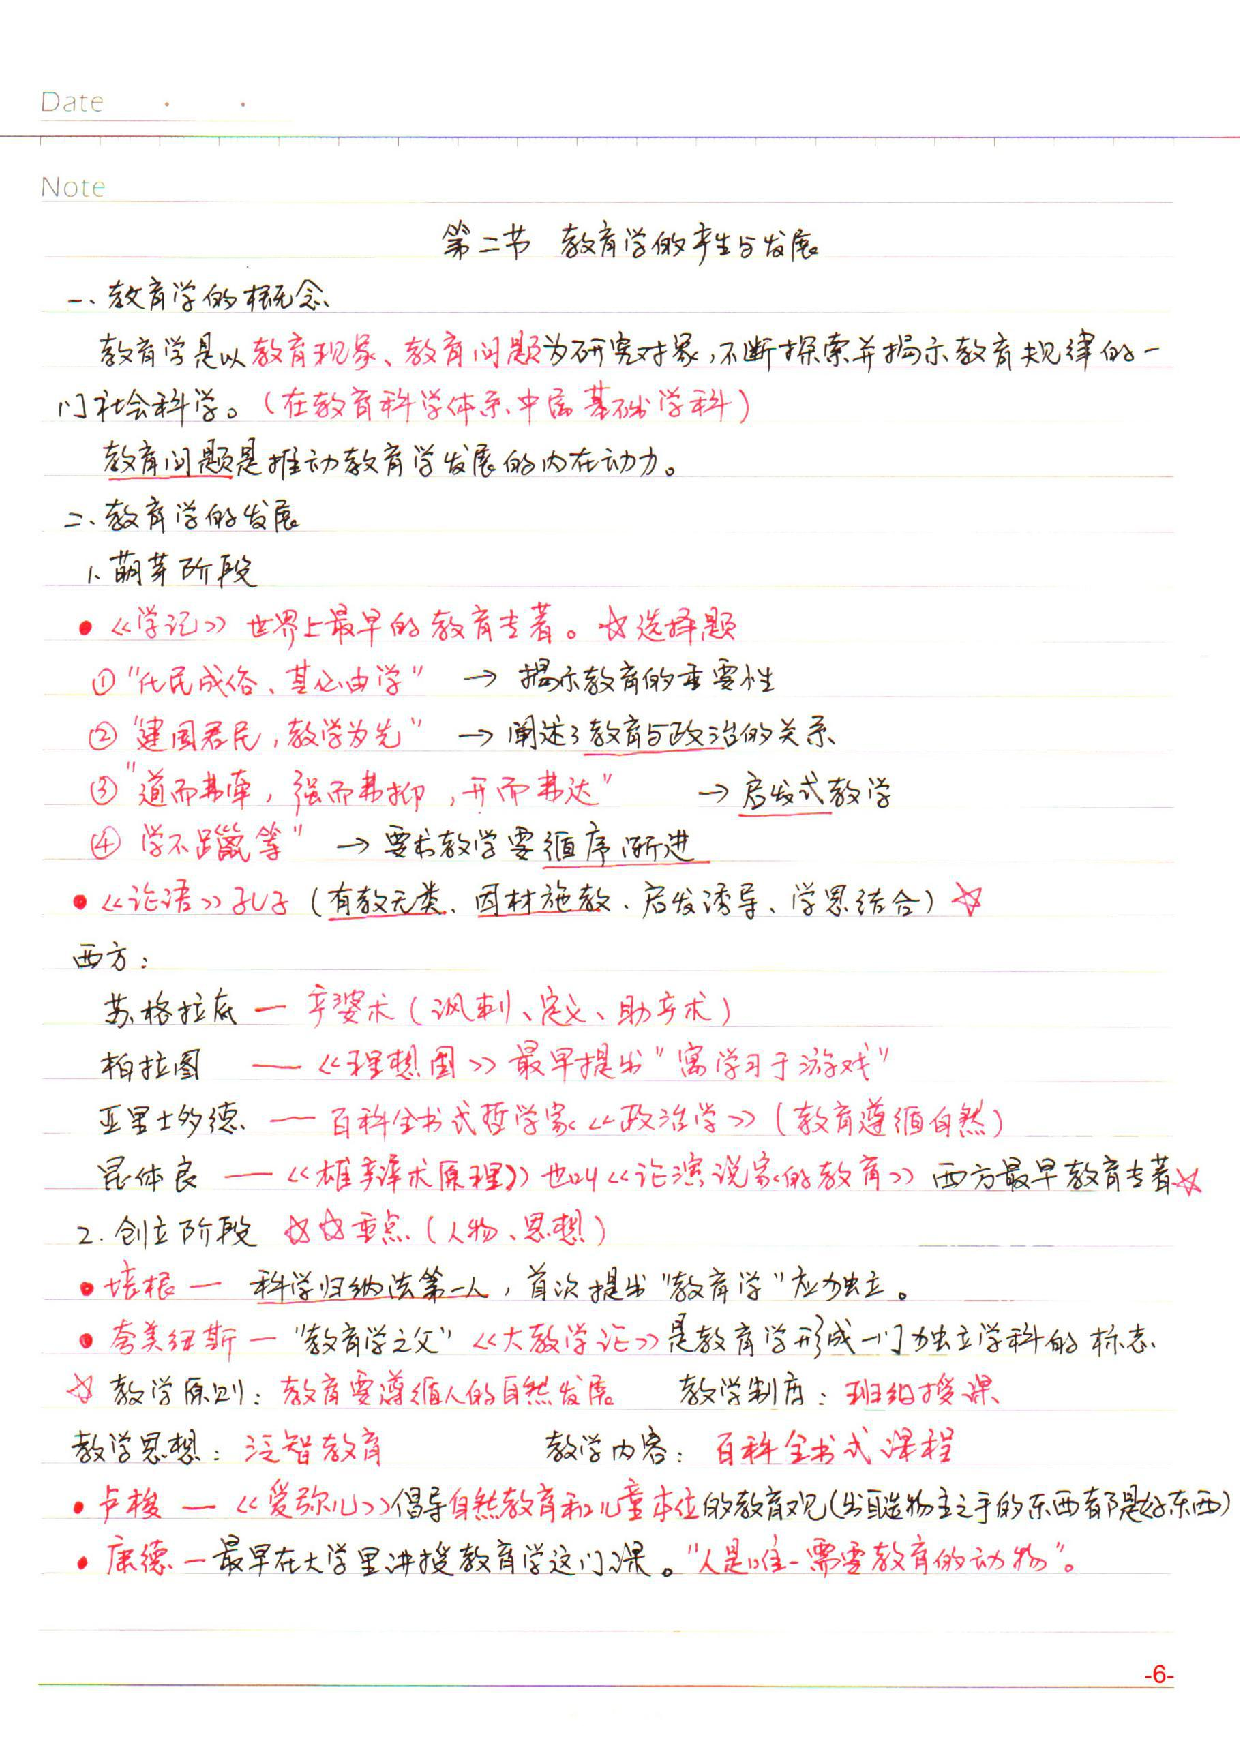 Date
Note
第二节 教育学的产生与发展
一、教育学的概念
教育学是以教育现象、教育问题为研究对象,不断探索并揭示教育规律的一
门社会科学。(在教育科学体系中属基础学科)
教育问题是推动教育学发展的内在动力。
二、教育学的发展
1、萌芽阶段
• 《学记》世界上最早的教育专著。☆选择题
① "化民成俗、其必由学" → 揭示教育的重要性
② "建国君民,教学为先" → 阐述了教育与政治的关系
③ "道而弗牵,强而弗抑,开而弗达" → 启发式教学
④ 学不躐等" → 要求教学要循序渐进
• 《论语》孔子(有教无类、因材施教、启发诱导、学思结合)☆
西方:
苏格拉底 — 产婆术(讽刺、定义、助产术)
柏拉图 — 《理想国》最早提出"寓学习于游戏"
亚里士多德 — 百科全书式哲学家《政治学》(教育遵循自然)
昆体良 — 《雄辩术原理》也叫《论演说家的教育》西方最早教育专著☆
2. 创立阶段 ☆☆重点(人物、思想)
• 培根 — 科学归纳法第一人,首次提出"教育学"应独立。
• 夸美纽斯 — "教育学之父"《大教学论》是教育学形成一门独立学科的标志
☆ 教学原则:教育要遵循人的自然发展 教学制度:班级授课
教学思想:泛智教育 教学内容:百科全书式课程
• 卢梭 — 《爱弥儿》倡导自然教育和儿童本位的教育观(出自造物主之手的东西都是好东西)
• 康德 — 最早在大学里讲授教育学这门课。"人是唯一需要教育的动物"。
-6-